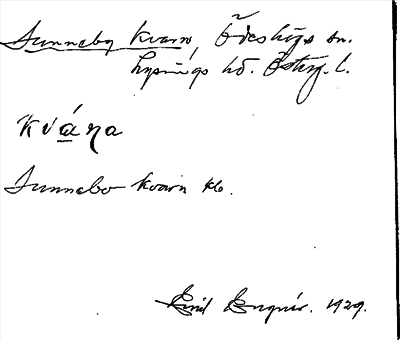 Sunneby kvarn, Ödeshögs sn.
Lysings hd. Österg. l.
kvána
Sunnebo kvarn kb.
Emil Enqvir. 1929.